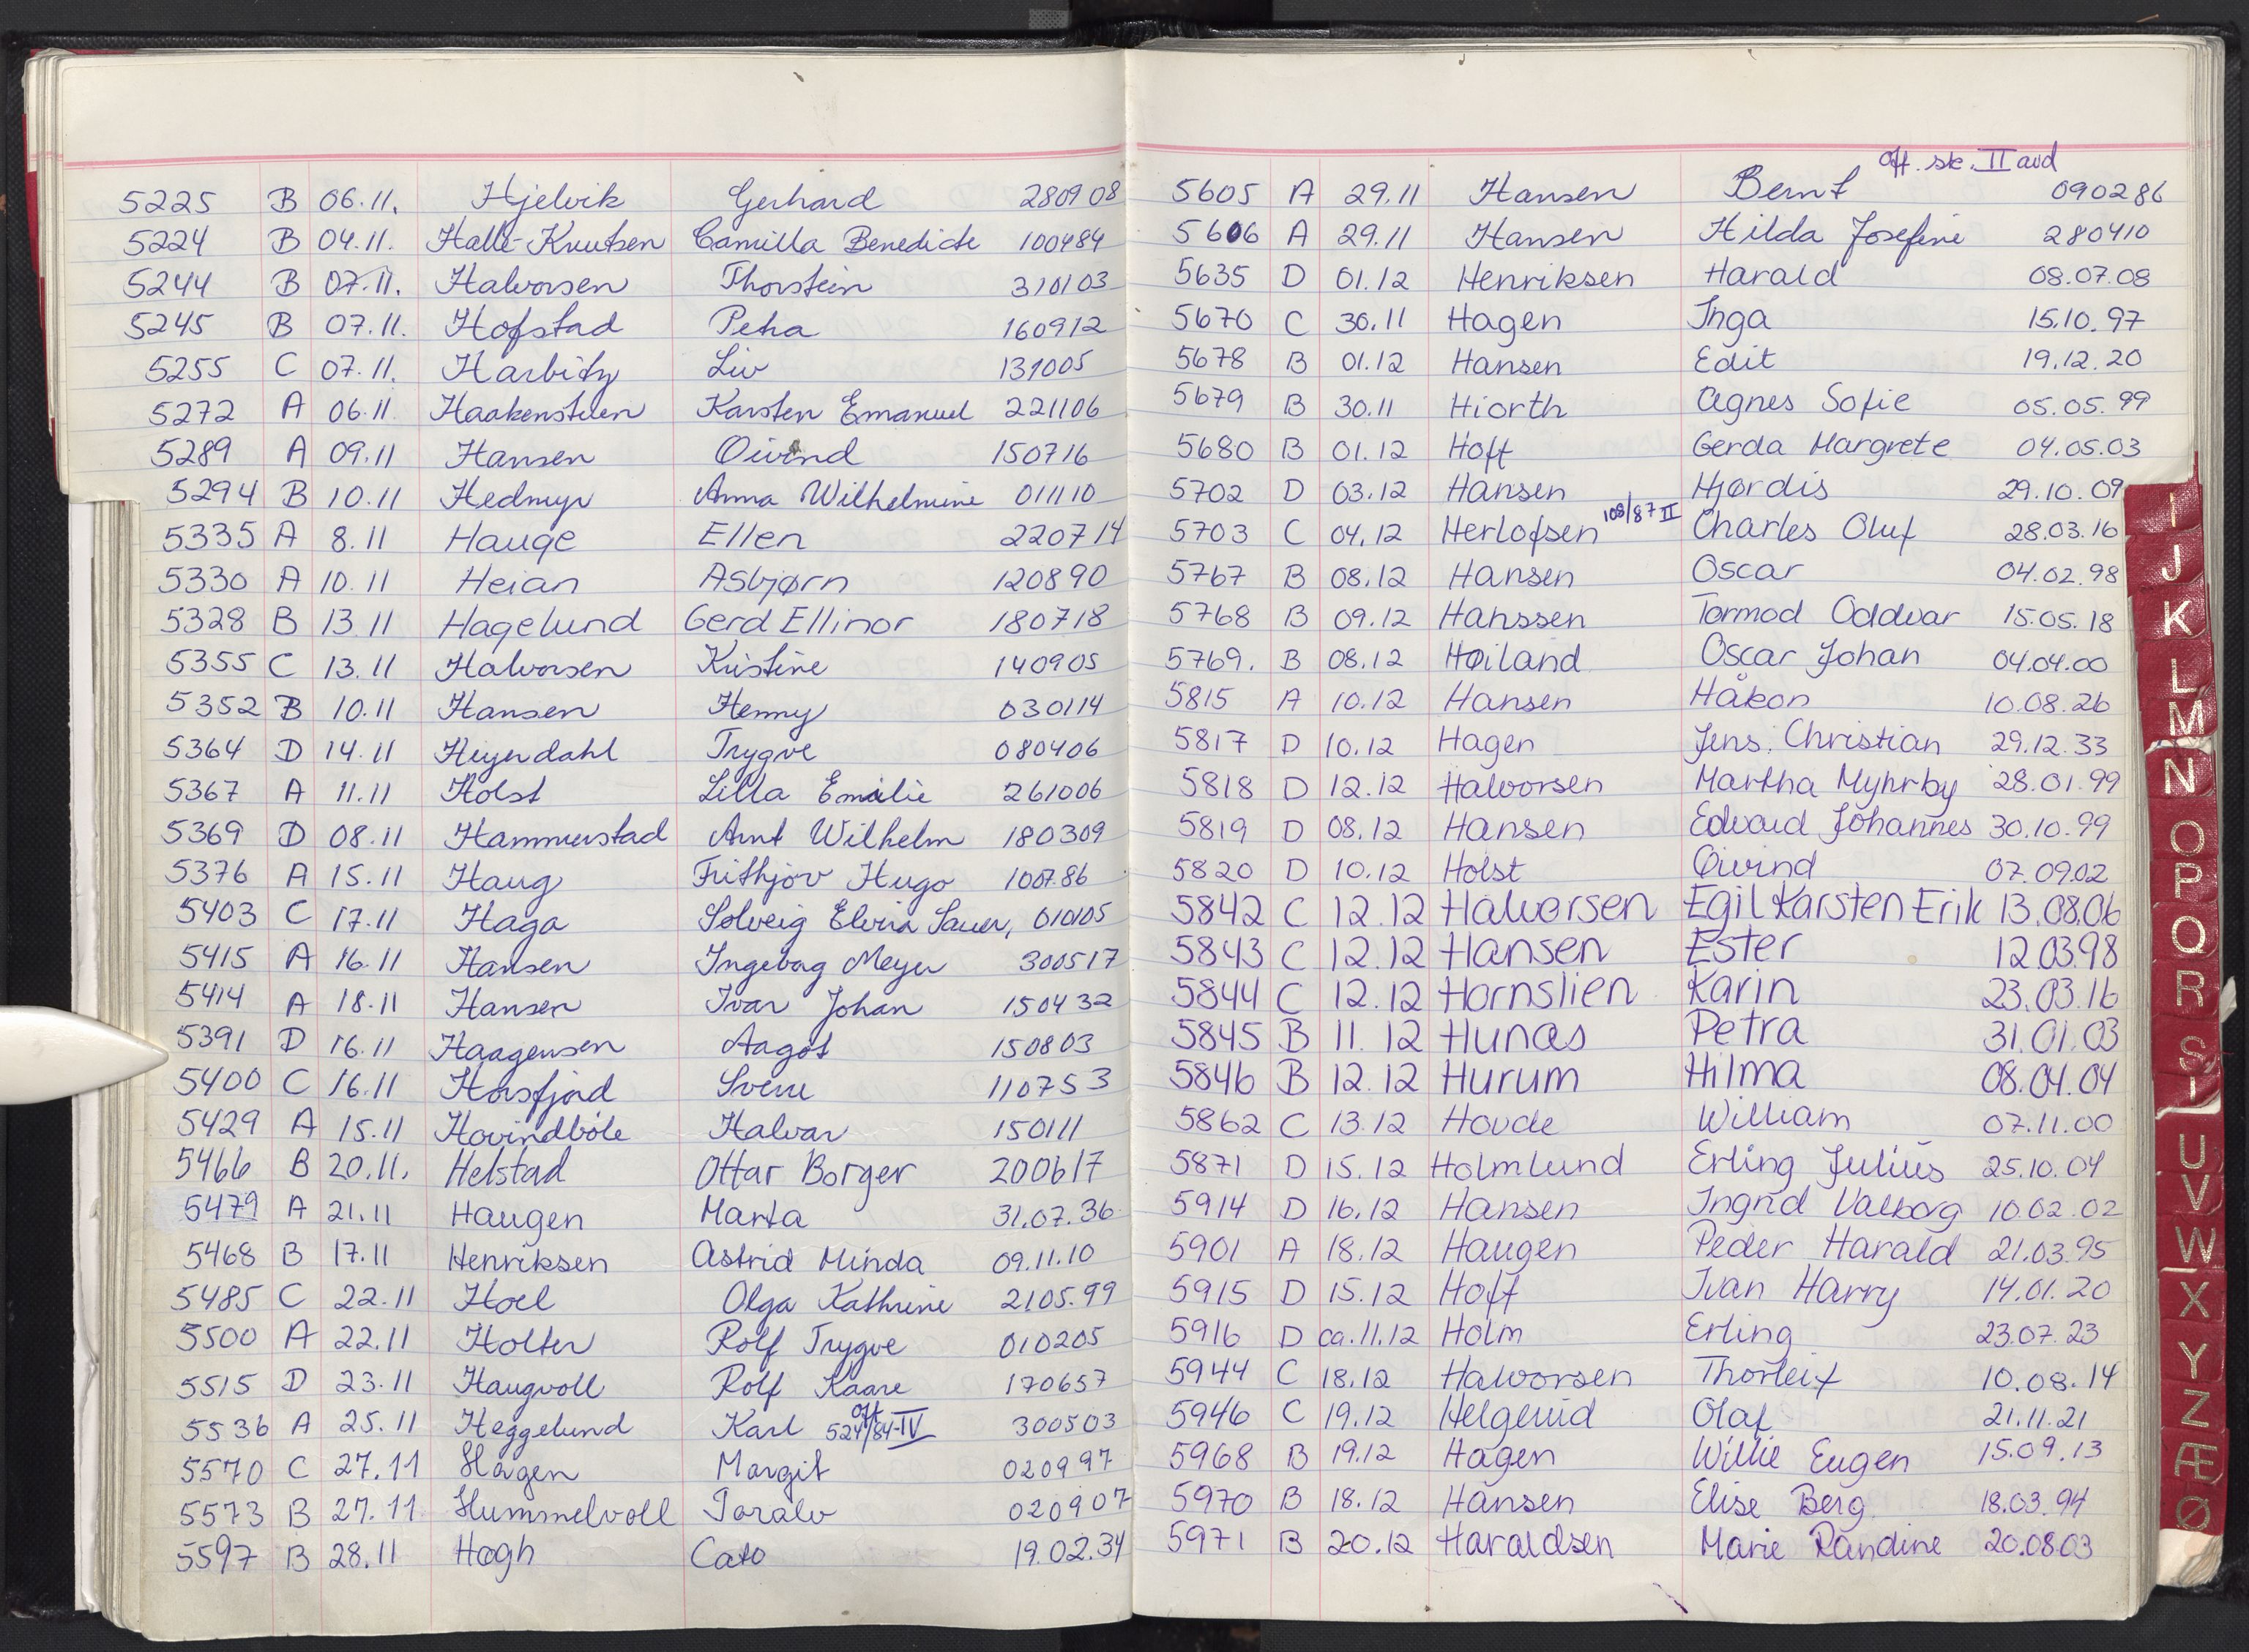 5225 B 06.11. Hjelvik Gerhard 280908
5224 B 04.11. Halle-Knutsen Camilla Benedicte 100484
5244 B 07.11. Halvorsen Thorstein 310103
5245 B 07.11. Hofstad Petra 160912
5255 C 07.11. Harbitz Liv 131005
5272 A 06.11 Haakensteen Karsten Emanuel 221106
5289 A 09.11 Hansen Oivind 150716
5294 B 10.11 Hedmyr Anna Wilhelmine 011110
5335 A 8.11 Hauge Ellen 220714
5330 A 10.11 Heian Asbjørn 120890
5328 B 13.11 Hagelund Gerd Ellinor 180718
5355 C 13.11 Halvorsen Kristine 140905
5352 B 10.11 Hansen Henny 030114
5364 D 14.11 Heyerdahl Trygve 080406
5367 A 11.11 Holst Lilla Emilie 261006
5369 D 08.11 Hammerstad Arnt Wilhelm 180309
5376 A 15.11 Haug Frithjov Hugo 100786
5403 C 17.11 Haga Solveig Elvira Sauer, 010105
5415 A 16.11 Hansen Ingeborg Meyer 300517
5414 A 18.11 Hansen Ivar Johan 150432
5391 D 16.11 Haagensen Aagot 150803
5400 C 16.11 Horsfjord Sverre 110753
5429 A 15.11 Hovindbøle Halvar 150111
5466 B 20.11. Helstad Ottar Borger 200617
5479 A 21.11 Haugen Marta 31.07.36
5468 B 17.11 Henriksen Astrid Minda 09.11.10
5485 C 22.11 Hoel Olga Kathrine 2105.99
5500 A 22.11 Holter Rolf Trygve 010205
5515 D 23.11 Haugvoll Rolf Kaare 170657
5536 A 25.11 Heggelund Karl off 524/84-IV 300503
5570 C 27.11 Hagen Margit 020997
5573 B 27.11 Hummelvoll Toralv 020907
5597 B 28.11 Høgh Cato 19.02.34
off. sk. II avd
5605 A 29.11 Hansen Bernt 090286
5606 A 29.11 Hansen Hilda Josefine 280410
5635 D 01.12 Henriksen Harald 08.07.08
5670 C 30.11 Hagen Inga 15.10.97
5678 B 01.12 Hansen Edit 19.12.20
5679 B 30.11 Hiorth Agnes Sofie 05.05.99
5680 B 01.12 Hoft Gerda Margrete 04.05.03
5702 D 03.12 Hansen Hjørdis 29.10.09
5703 C 04.12 Herlofsen 108/87 II Charles Oluf 28.03.16
5767 B 08.12 Hansen Oscar 04.02.98
5768 B 09.12 Hanssen Tormod Oddvar 15.05.18
5769. B 08.12 Høiland Oscar Johan 04.04.00
5815 A 10.12 Hansen Håkon 10.08.26
5817 D 10.12 Hagen Jens Christian 29.12.33
5818 D 12.12 Halvorsen Martha Myhrby 28.01.99
5819 D 08.12 Hansen Edvard Johannes 30.10.99
5820 D 10.12 Holst Øivind 07.09.02
5842 C 12.12 Halvorsen Egil Karsten Erik 13.08.06
5843 C 12.12 Hansen Ester 12.03.98
5844 C 12.12 Hornslien Karin 23.03.16
5845 B 11.12 Hunæs Petra 31.01.03
5846 B 12.12 Hurum Hilma 08.04.04
5862 C 13.12 Hovde William 07.11.00
5871 D 15.12 Holmlund Erling Julius 25.10.04
5914 D 16.12 Hansen Ingrid Valborg 10.02.02
5901 A 18.12 Haugen Peder Harald 21.03.95
5915 D 15.12 Hoft Ivan Harry 14.01.20
5916 D ca.11.12 Holm Erling 23.07.23
5944 C 18.12 Halvorsen Thorleif 10.08.14
5946 C 19.12 Helgerud Olaf 21.11.21
5968 B 19.12 Hagen Willie Eugen 15.09.13
5970 B 18.12 Hansen Elise Berg 18.03.94
5971 B 20.12 Haraldsen Marie Randine 20.08.03
I
J
K
L
M
N
O
P
Q
R
S
T
U
V
W
X
Y
Z
Æ
Ø